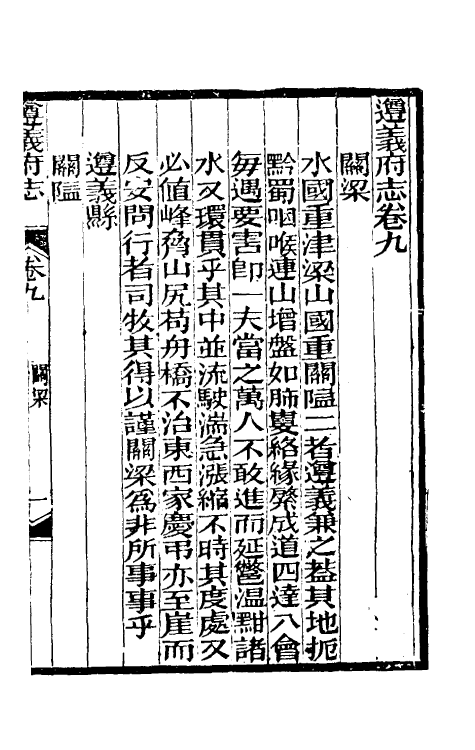 遵義府志卷九
關梁
水國重津梁山國重關隘二者遵義兼之葢其地扼
黔蜀咽喉連山增盤如肺㜸絡緣縏成道四達八會
毎遇要害卽一夫當之萬人不敢進而延鬱温黚諸
水又環貫乎其中並流駛湍急漲縮不時其度處又
必值峰脊山尻苟舟橋不治東西家慶弔亦至崖而
反安問行者司牧其得以謹關梁爲非所事事乎
遵義縣
關隘
遵義府志
卷九
關梁
一